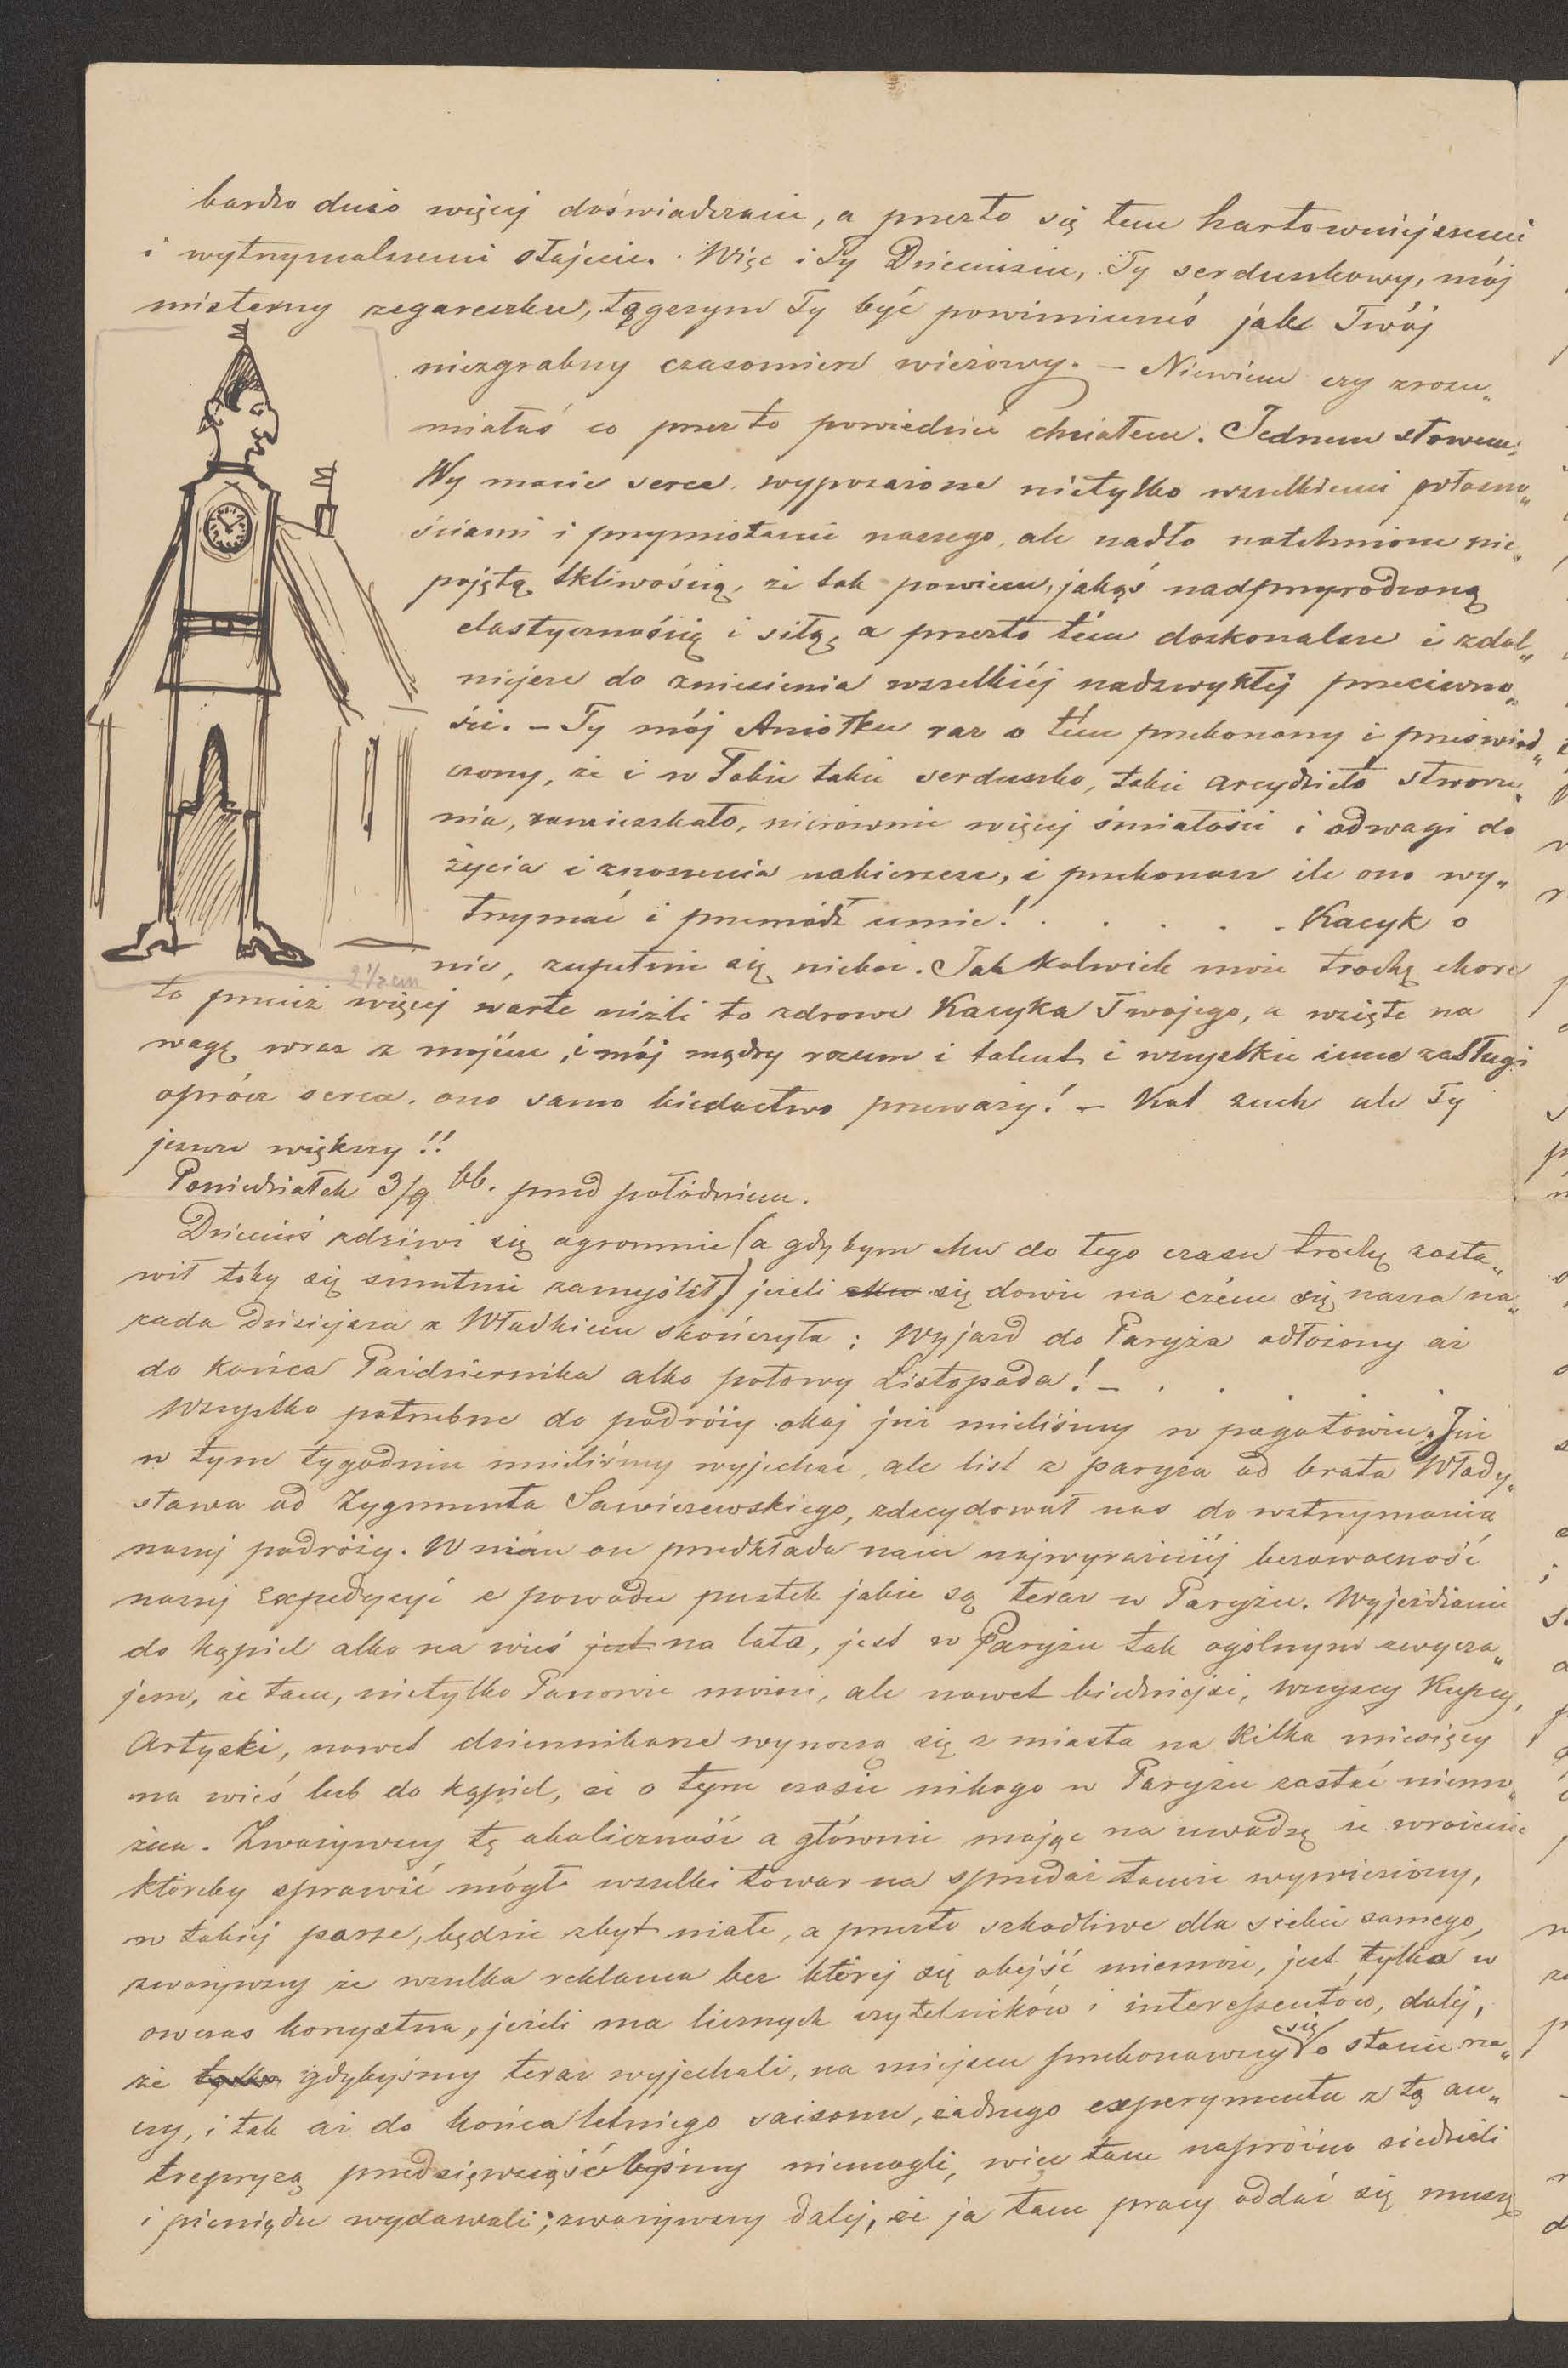 bardzo dużo więcej doświadczacie, a przezto się tem hartowniejszemi
i wytrzymalszemi stajecie. Więc i Ty Dzieciuziu, Ty serduszkowy, mój
misterny zegareczku, tęgszym Ty być powinieneś jak Twój
niezgrabny czasomierz wieżowy. – Niewiem czy zrozu„
miałaś co przez to powiedzieć chciałem. Jednem słowem,
Wy macie serca wyposażone nietylko wszelkiemi własno„
ściami i przymiotami naszego, ale nadto natchnione nie„
pojętą tkliwością, że tak powiem, jakąś nadprzyrodzoną
elastycznością i siłą, a przezto tém doskonalsze i zdol„
niejsze do zniesienia wszelkiéj nadzwykłej przeciwno„
ści. – Ty mój Aniołku raz o tém przekonany i przeświad„
czony, że i w Tobie takie serduszko, takie arcydzieło stworze„
nia, zamieszkało, nierównie więcej śmiałości i odwagi do
życia i znoszenia nabierzesz, i przekonasz ile ono wy„
trzymać i przemódz umie! . . . . . Kacyk o
nie, zupełnie się nieboi. Jakkolwiek może trochę chore
2½ cm
to przecież więcej warte niźli to zdrowe Kacyka Twojego, a wzięte na
wagę wraz z mojém, i mój mądry rozum i talent i wszystkie inne zasługi
oprócz serca, ono samo biedactwo przeważy! – Kat zuch ale Ty
jeszcze większy!!
Poniedziałek 3/9 bb. przed połódniem.
Dzieciuś zdziwi się ogromnie (a gdybym chw do tego czasu trochę zosta„
wił toby się smutnie zamyślił) jeżeli się dowie na czém się nasza na„
rada dzisiejsza z Władkiem skończyła: Wyjazd do Paryża odłożony aż
do końca Października albo połowy Listopada! – . . . . .
Wszystko potrzebne do podróży obaj już mieliśmy w pogotowiu. Już
w tym tygodniu mieliśmy wyjechać, ale list z paryża od brata Włady„
sława od Zygmunta Sawiczewskiego, zdecydował nas do wstrzymania
naszej podróży. W nićm on przedkłada nam najwyraźniéj bezowocność
naszej Expedycyi z powodu pustek jakie są teraz w Paryżu. Wyjeżdżanie
do kąpiel albo na wieś jest na lata, jest w Paryżu tak ogólnym zwycza„
jem, że tam, nietylko Panowie możni, ale nawet biedniejsi, wszyscy Kupcy,
Artyści, nawet dziennikarze wynoszą się z miasta na kilka miesięcy
na wieś lub do kąpiel, że o tym czasie nikogo w Paryżu zastać niemo„
żna. Zważywszy tę okoliczność a głównie mając na uwadze że wrażenie
któreby sprawić mógł wszelki towar na sprzedaż tamże wywieziony,
w takiéj porze, będzie zbyt małe, a przezto szkodliwe dla siebie samego,
zważywszy że wszelka reklama bez której się obejść niemoże, jest tylko w
ówczas korzystna, jeżeli ma licznych czytelników i interessentów, daléj,
że tylko gdybyśmy teraz wyjechali, na miejscu przekonawszy się o stanie rze„
czy, i tak aż do końca letniego saisonu, żadnego experymentu z tą an„
trepryzą przedsięwziąść byśmy niemogli, więc tam napróżno siedzieli
i pieniądze wydawali; zważywszy dalej, że ja tam pracy oddać się muszę